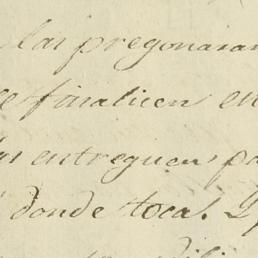 las pregonaran
finalicen en
entreguen pa
donde toca. Y